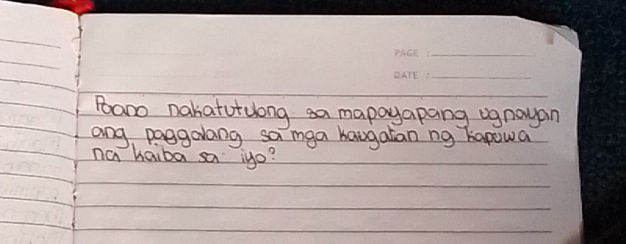 PAGE :
DATE :
Paano nakatutulong sa mapayapang ugnayan
ang paggalang sa mga kaugalian ng kapuwa
na kaiba sa iyo?